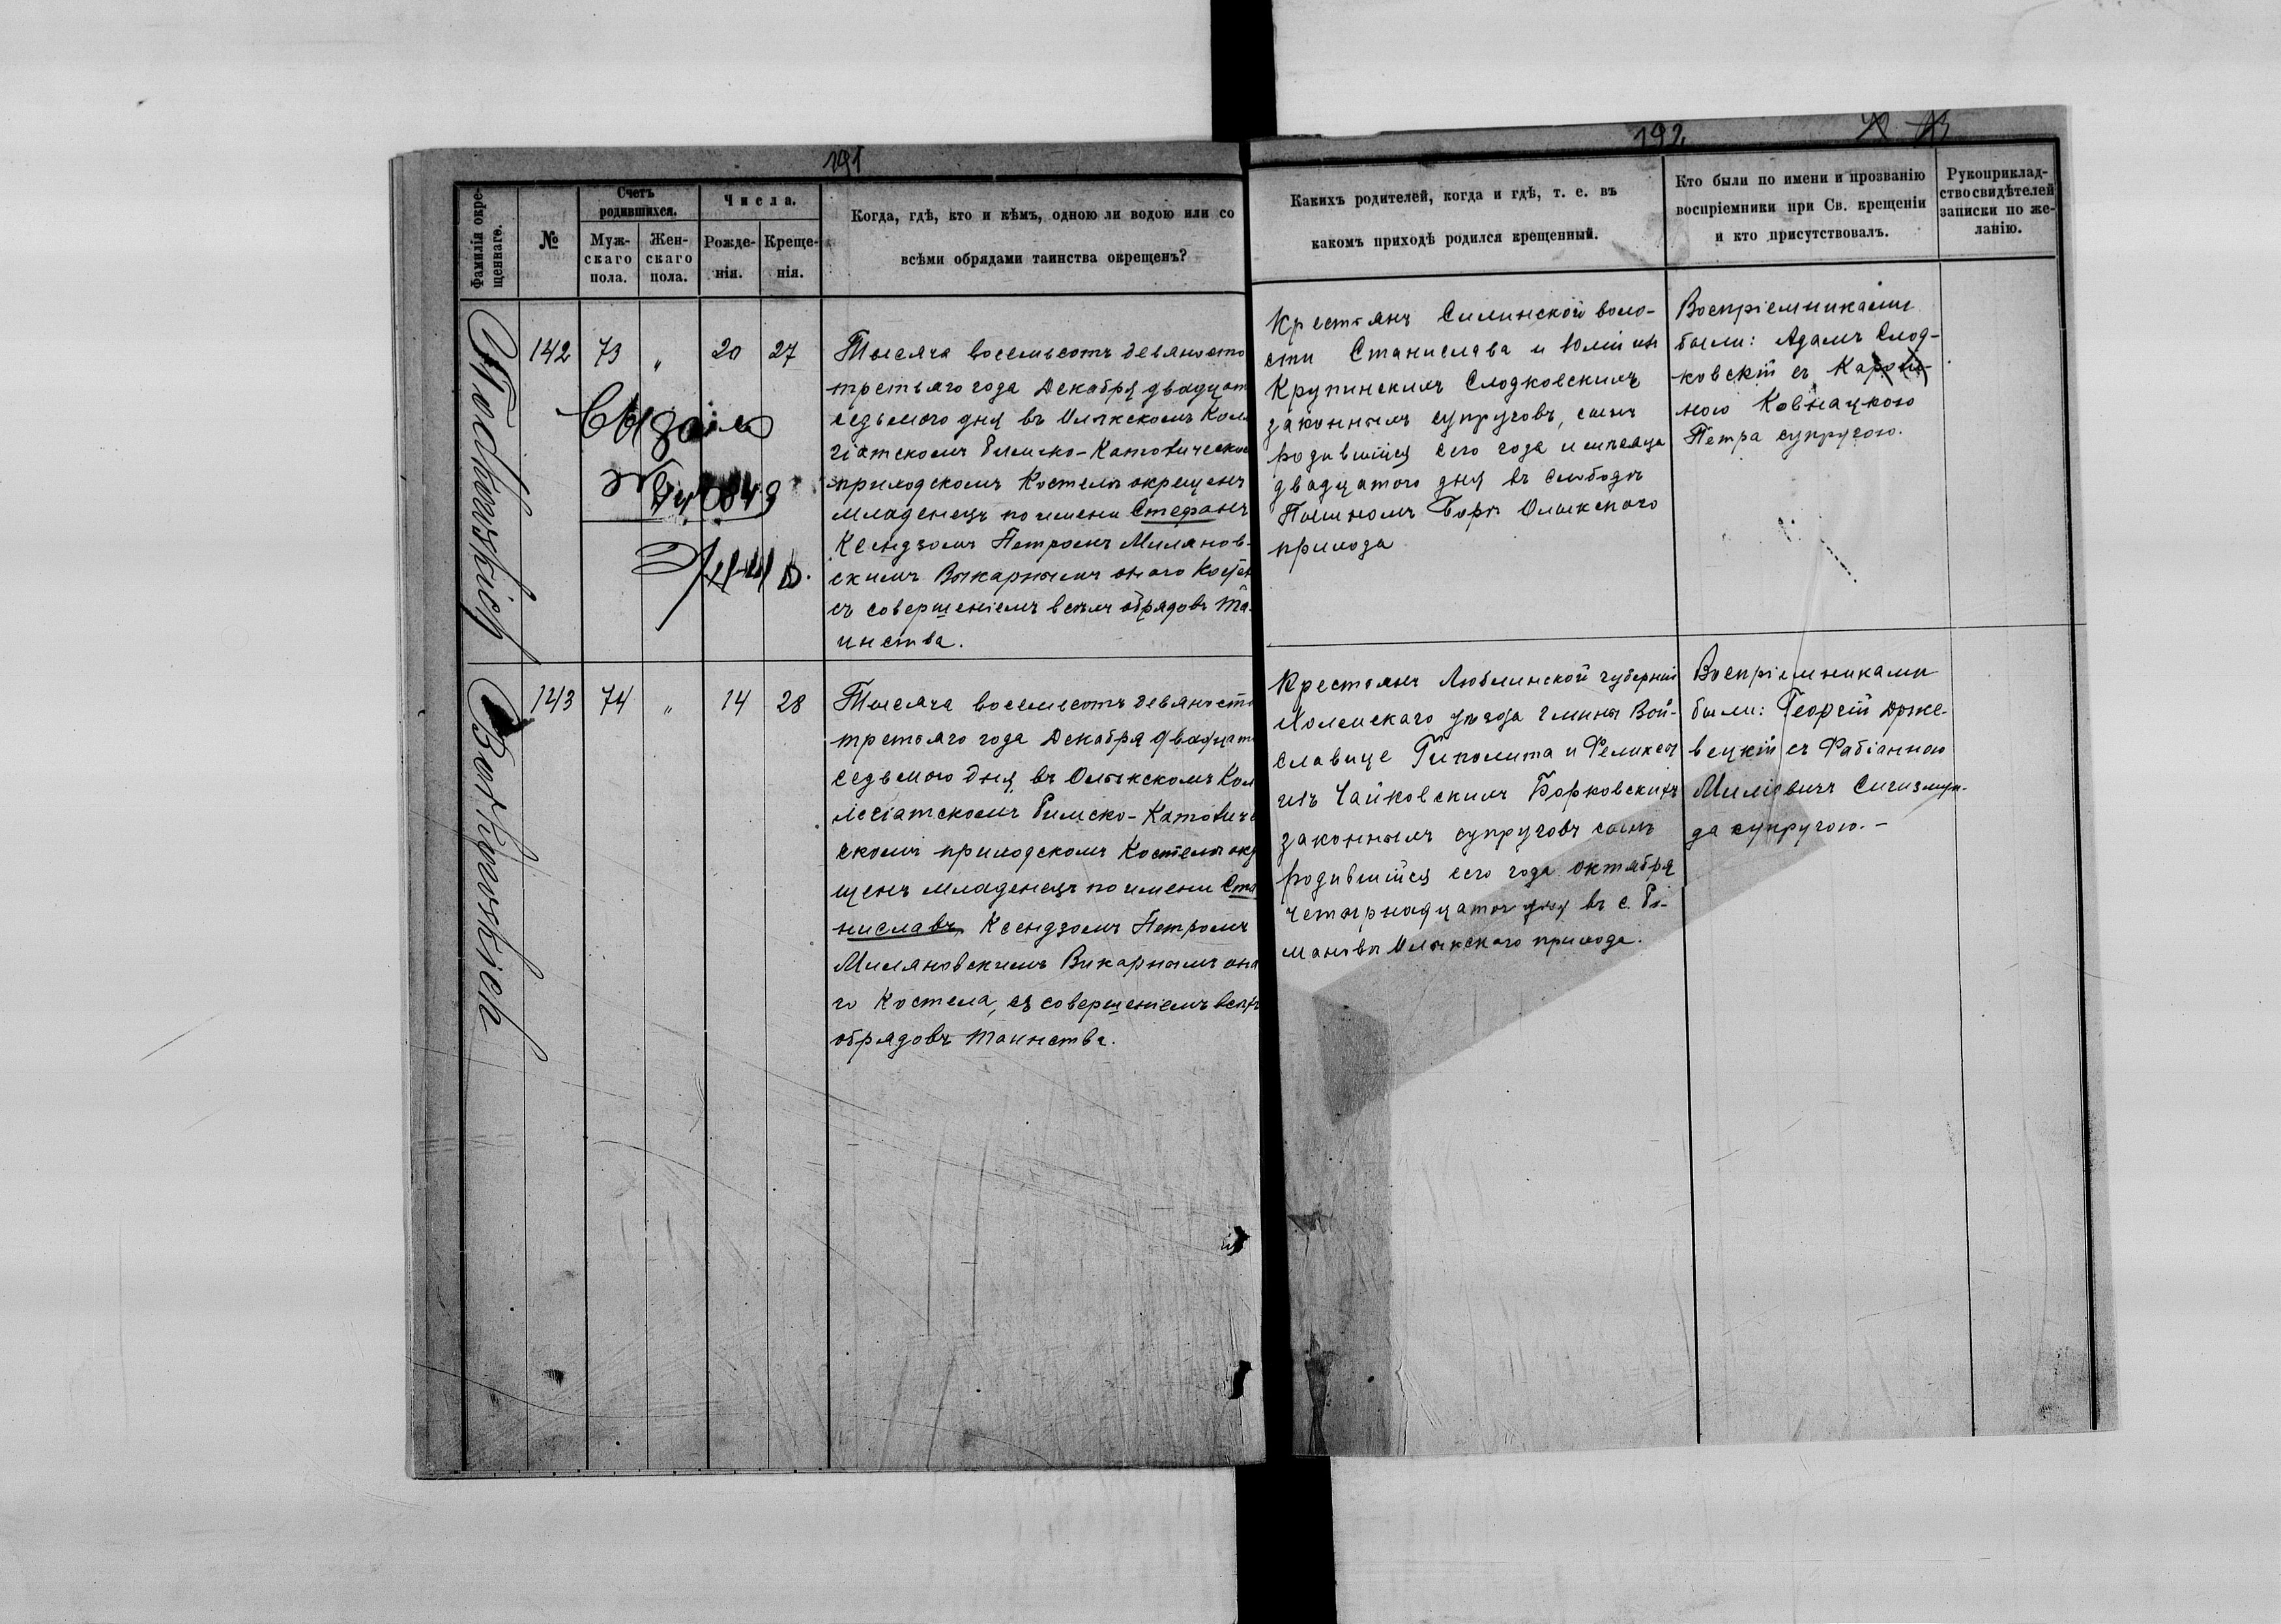 191
Фамиліи окре-
щеннаго.
№
Счетъ
родившихся.
Муж-
скаго
пола.
Жен-
скаго
пола.
Числа.
Рожде-
нія.
Креще-
нія.
Когда, гдѣ, кто и кѣмъ, одною ли водою или со
всѣми обрядами таинства окрещенъ?
142 73 „ 20 27
Тысяча восемьсотъ девяносто
третьяго года Декабря двадцат
седьмого дня въ Олыкскомъ Кол
гіатскомъ Римско-Католическом
приходскомъ Костелѣ окрещенъ
младенецъ по имени Стефанъ
Ксендзомъ Петромъ Милянов-
скимъ Викарнымъ онаго Костел
съ совершеніемъ всѣхъ обрядовъ Та-
инства.
143 74 „ 14 28
Borkowskich
Тысяча восемьсотъ девяносто
третьяго года Декабря двадцат
седьмого дня въ Олыкскомъ Кол
легіатскомъ Римско-Католиче
скомъ приходскомъ Костелѣ окр
щенъ младенецъ по имени Ста
ниславъ Ксендзомъ Петромъ
Миляновскимъ Викарнымъ она
го Костела, съ совершеніемъ всѣхъ
обрядовъ таинства.
192
Какихъ родителей, когда и гдѣ, т. е. въ
какомъ приходѣ родился крещенный.
Кто были по имени и прозванію
воспріемники при Св. крещеніи
и кто присутствовалъ.
Рукоприклад-
ство свидѣтелей
записки по же-
ланію.
Крестьянъ Силинской воло-
сти Станислава и Юліи изъ
Крупинскихъ Слодковскихъ
законныхъ супруговъ, сынъ
родившійся сего года и мѣсяца
двадцатого дня въ слободѣ
Борѣ Олыкского
прихода
Воспріемниками
были: Адамъ Слод-
ковскій съ
ною Ковнацкою
Петра супругою.
Крестьянъ Люблинской губерніи
Холмскаго уѣзда гмины Вой-
славице Гиполита и Феликсы
изъ Чайковскихъ Борковскихъ
законныхъ супруговъ сынъ
родившійся сего года октября
четырнадцатого дня въ с. Ро-
мановѣ Олыкского прихода.
Воспріемниками
были: Георгій Држе-
вецкій съ Фабіанною
Милевичъ Сигизмун-
да супругою.-